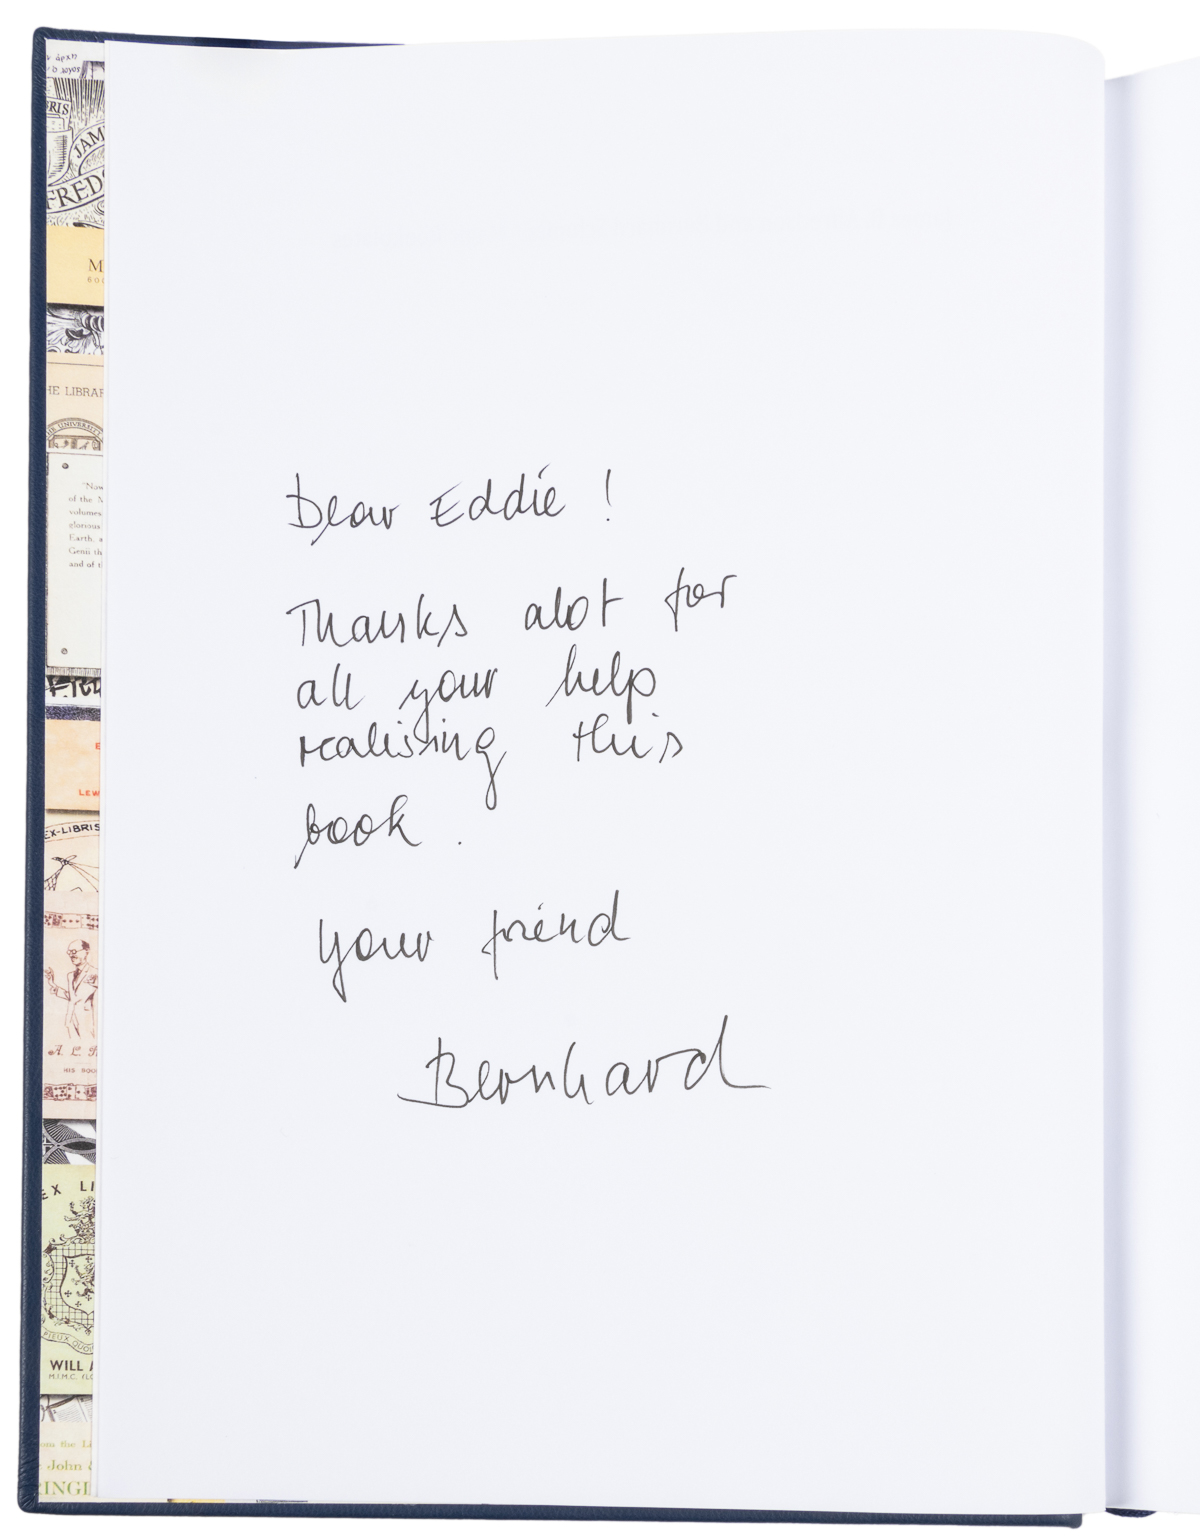 Dear Eddie !
Thanks alot for
all your help
realising this
book .
Your friend
Bernhard
BRIS
JAM
FRED
M
BOO
HE LIBRAR
THE UNIVERSIT
"Now
of the M
volumes
glorious
Earth, a
Genii th
and of t
FIEL
E
LEW
EX-LIBRIS
A. L. R
HIS BOO
EX LI
PIEUX QUO
WILL A
M.I.M.C. (LO
om the Li
John &
RINGL